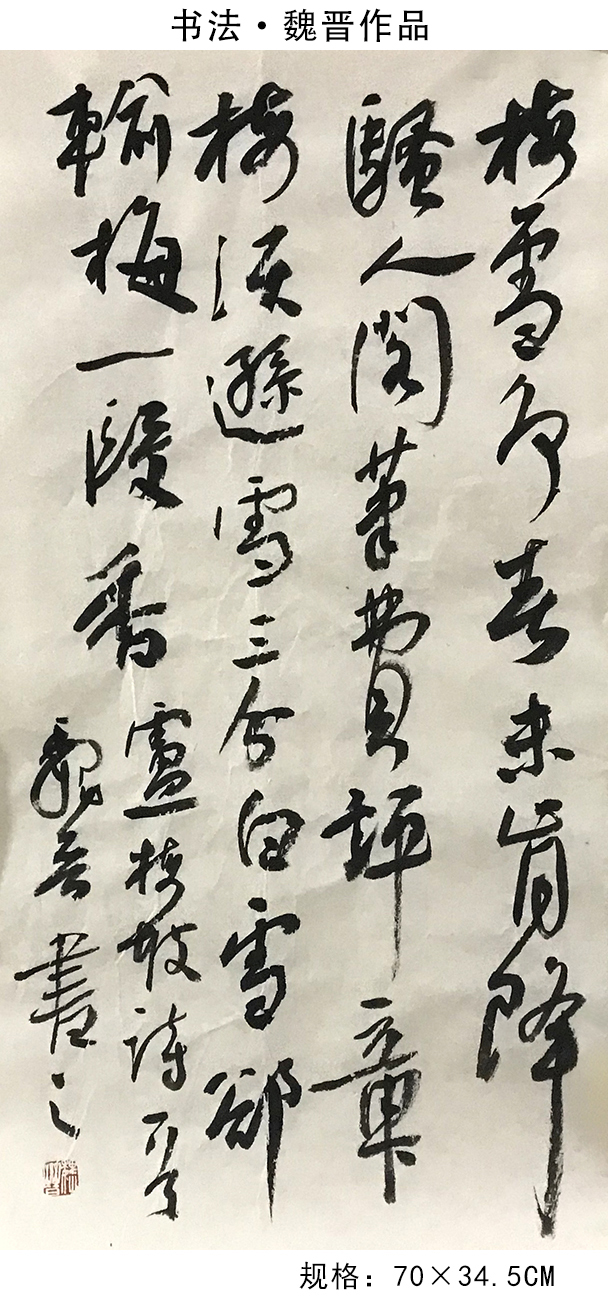 书法·魏晋作品
梅雪争春未肯降
騷人阁筆費評章
梅须遜雪三分白雪卻
輸梅一段香
盧梅坡詩一首
魏晋書之
规格：70×34.5CM